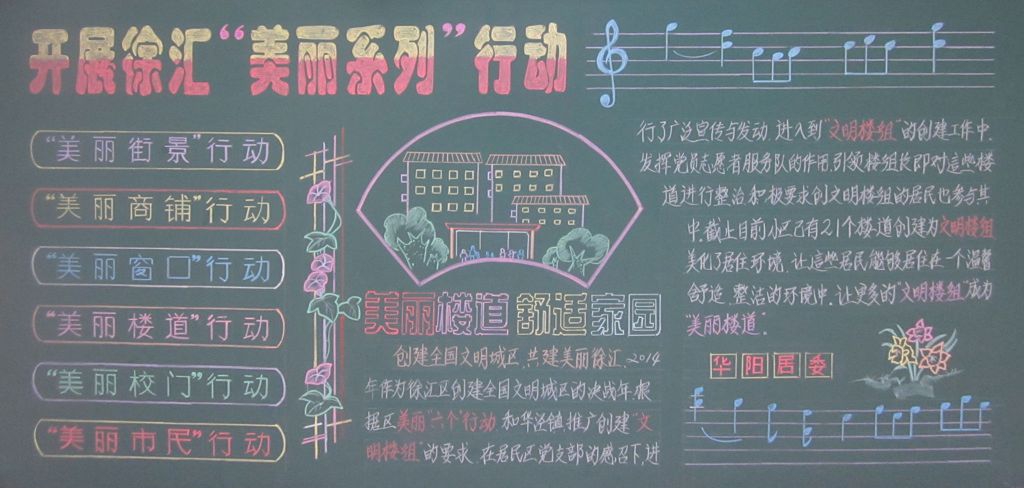 开展徐汇“美丽系列”行动
“美丽街景”行动
“美丽商铺”行动
“美丽窗口”行动
“美丽楼道”行动
“美丽校门”行动
“美丽市民”行动
美丽楼道 舒适家园
创建全国文明城区,共建美丽徐汇、2014
年作为徐汇区创建全国文明城区的决战年.根
据区美丽“六个”行动 和华泾镇推广创建“文
明楼组”的要求 在居民区党支部的感召下,进
行了广泛宣传与发动,进入到“文明楼组”的创建工作中
发挥党员志愿者服务队的作用,引领楼组长即对这些楼
道进行整治和积极要求创文明楼组的居民也参与其
中.截止目前小区已有21个楼道创建为文明楼组
美化了居住环境,让这些居民能够居住在一个温馨
舒适、整洁的环境中,让更多的“文明楼组”成为
“美丽楼道”.
华阳居委